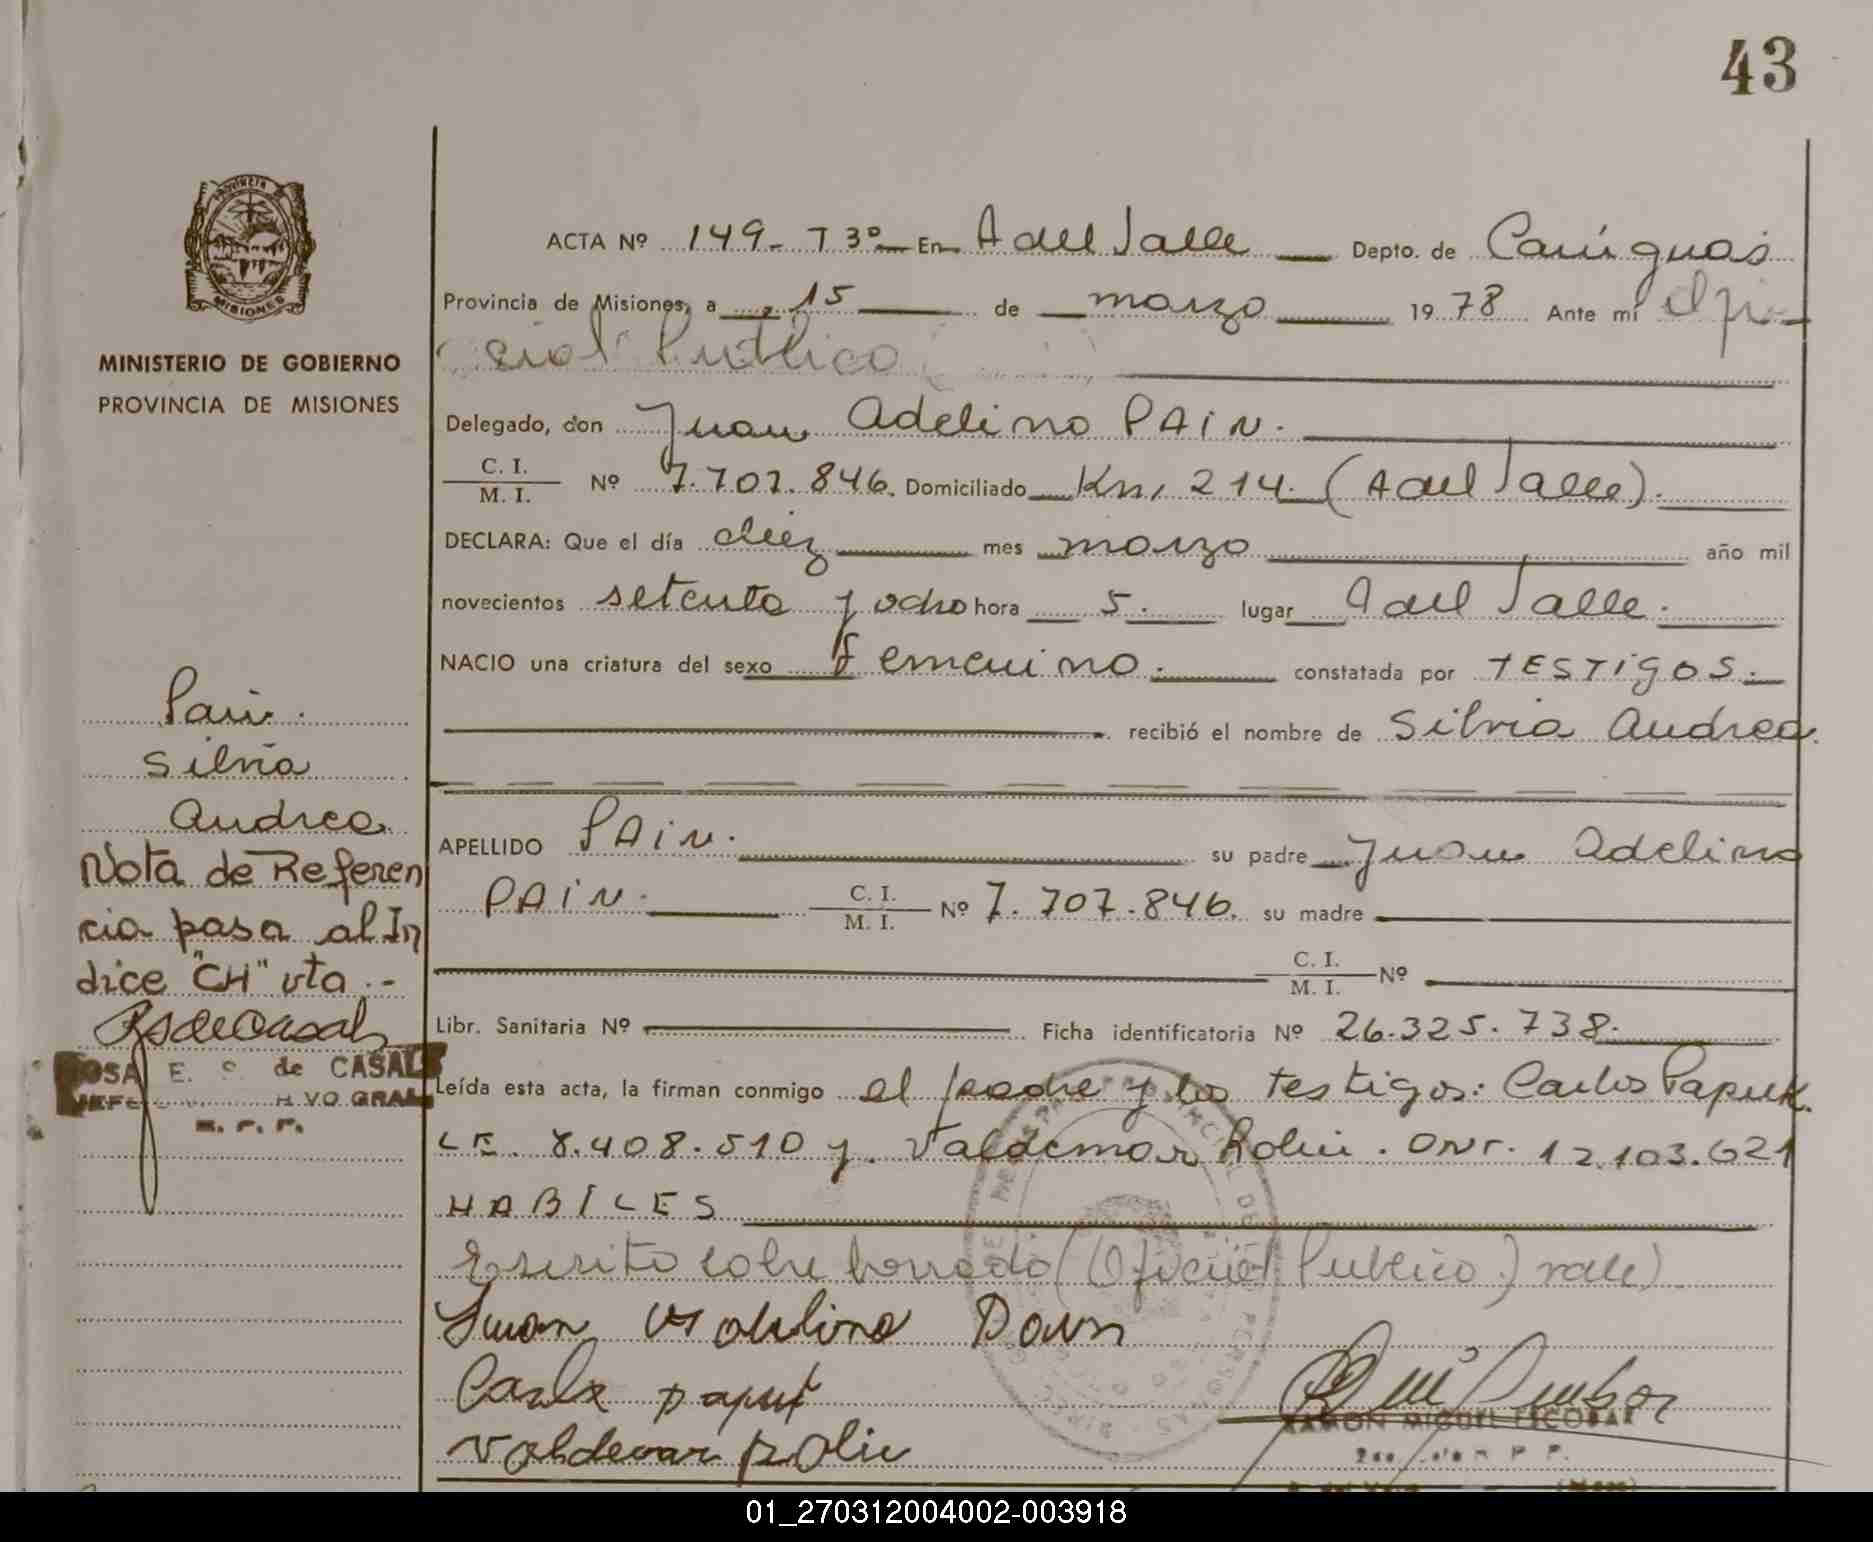 43
PROVINCIA DE
MISIONES
MINISTERIO DE GOBIERNO
PROVINCIA DE MISIONES
ACTA Nº 149- T 3º En A del Valle Depto. de Cainguás
Provincia de Misiones, a 15 de marzo 1978 Ante mí Ofi-
cial Publico
Delegado, don Juan Adelino PAIN.
C. I. / M. I. Nº 7.707.846. Domiciliado Km. 214. (A del Valle).
DECLARA: Que el día diez mes marzo año mil
novecientos setenta y ocho hora 5. lugar A del Valle.
NACIO una criatura del sexo femenino. constatada por TESTIGOS.
recibió el nombre de Silvia Andrea.
APELLIDO PAIN. su padre Juan Adelino
PAIN. C. I. / M. I. Nº 7.707.846. su madre
C. I. / M. I. Nº
Libr. Sanitaria Nº Ficha identificatoria Nº 26.325.738.
Leída esta acta, la firman conmigo el padre y los testigos: Carlos Paput.
LE. 8.408.510 y Valdemar Rolin. DNI. 12.103.621
HABILES
Escrito sobre borrado (Oficial Publico) vale)
Juan Adelino Pain
Carlos paput
Valdemar Rolin
RAMON MIGUEL ESCOBAR
Pain.
Silvia
Andrea.
Nota de Referen
cia pasa al In
dice "CH" vta.-
ROSA E. de CASALS
R. P. P.
01_270312004002-003918